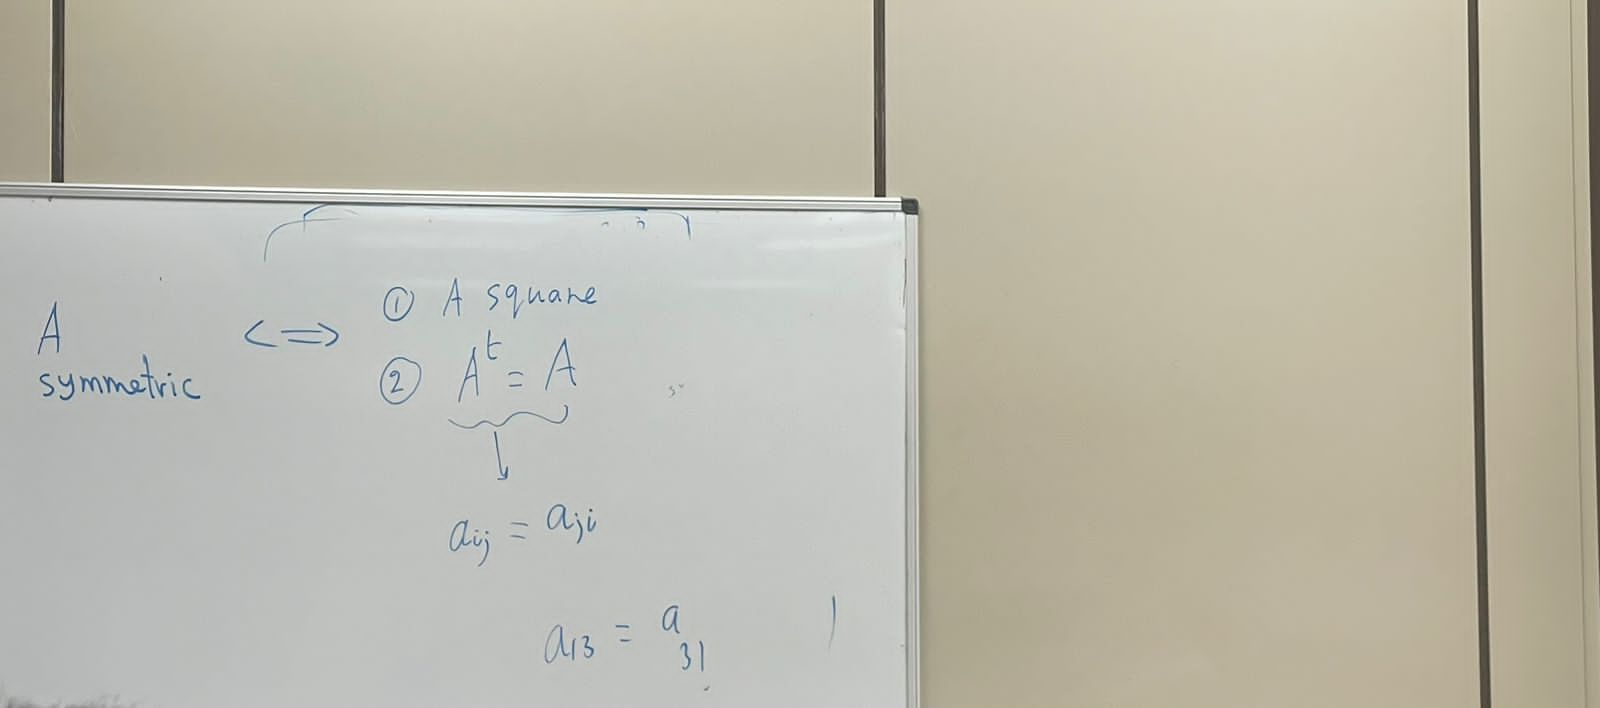 A symmetric <=> ① A square
② Aᵗ = A
↓
aᵢⱼ = aⱼᵢ
a₁₃ = a₃₁